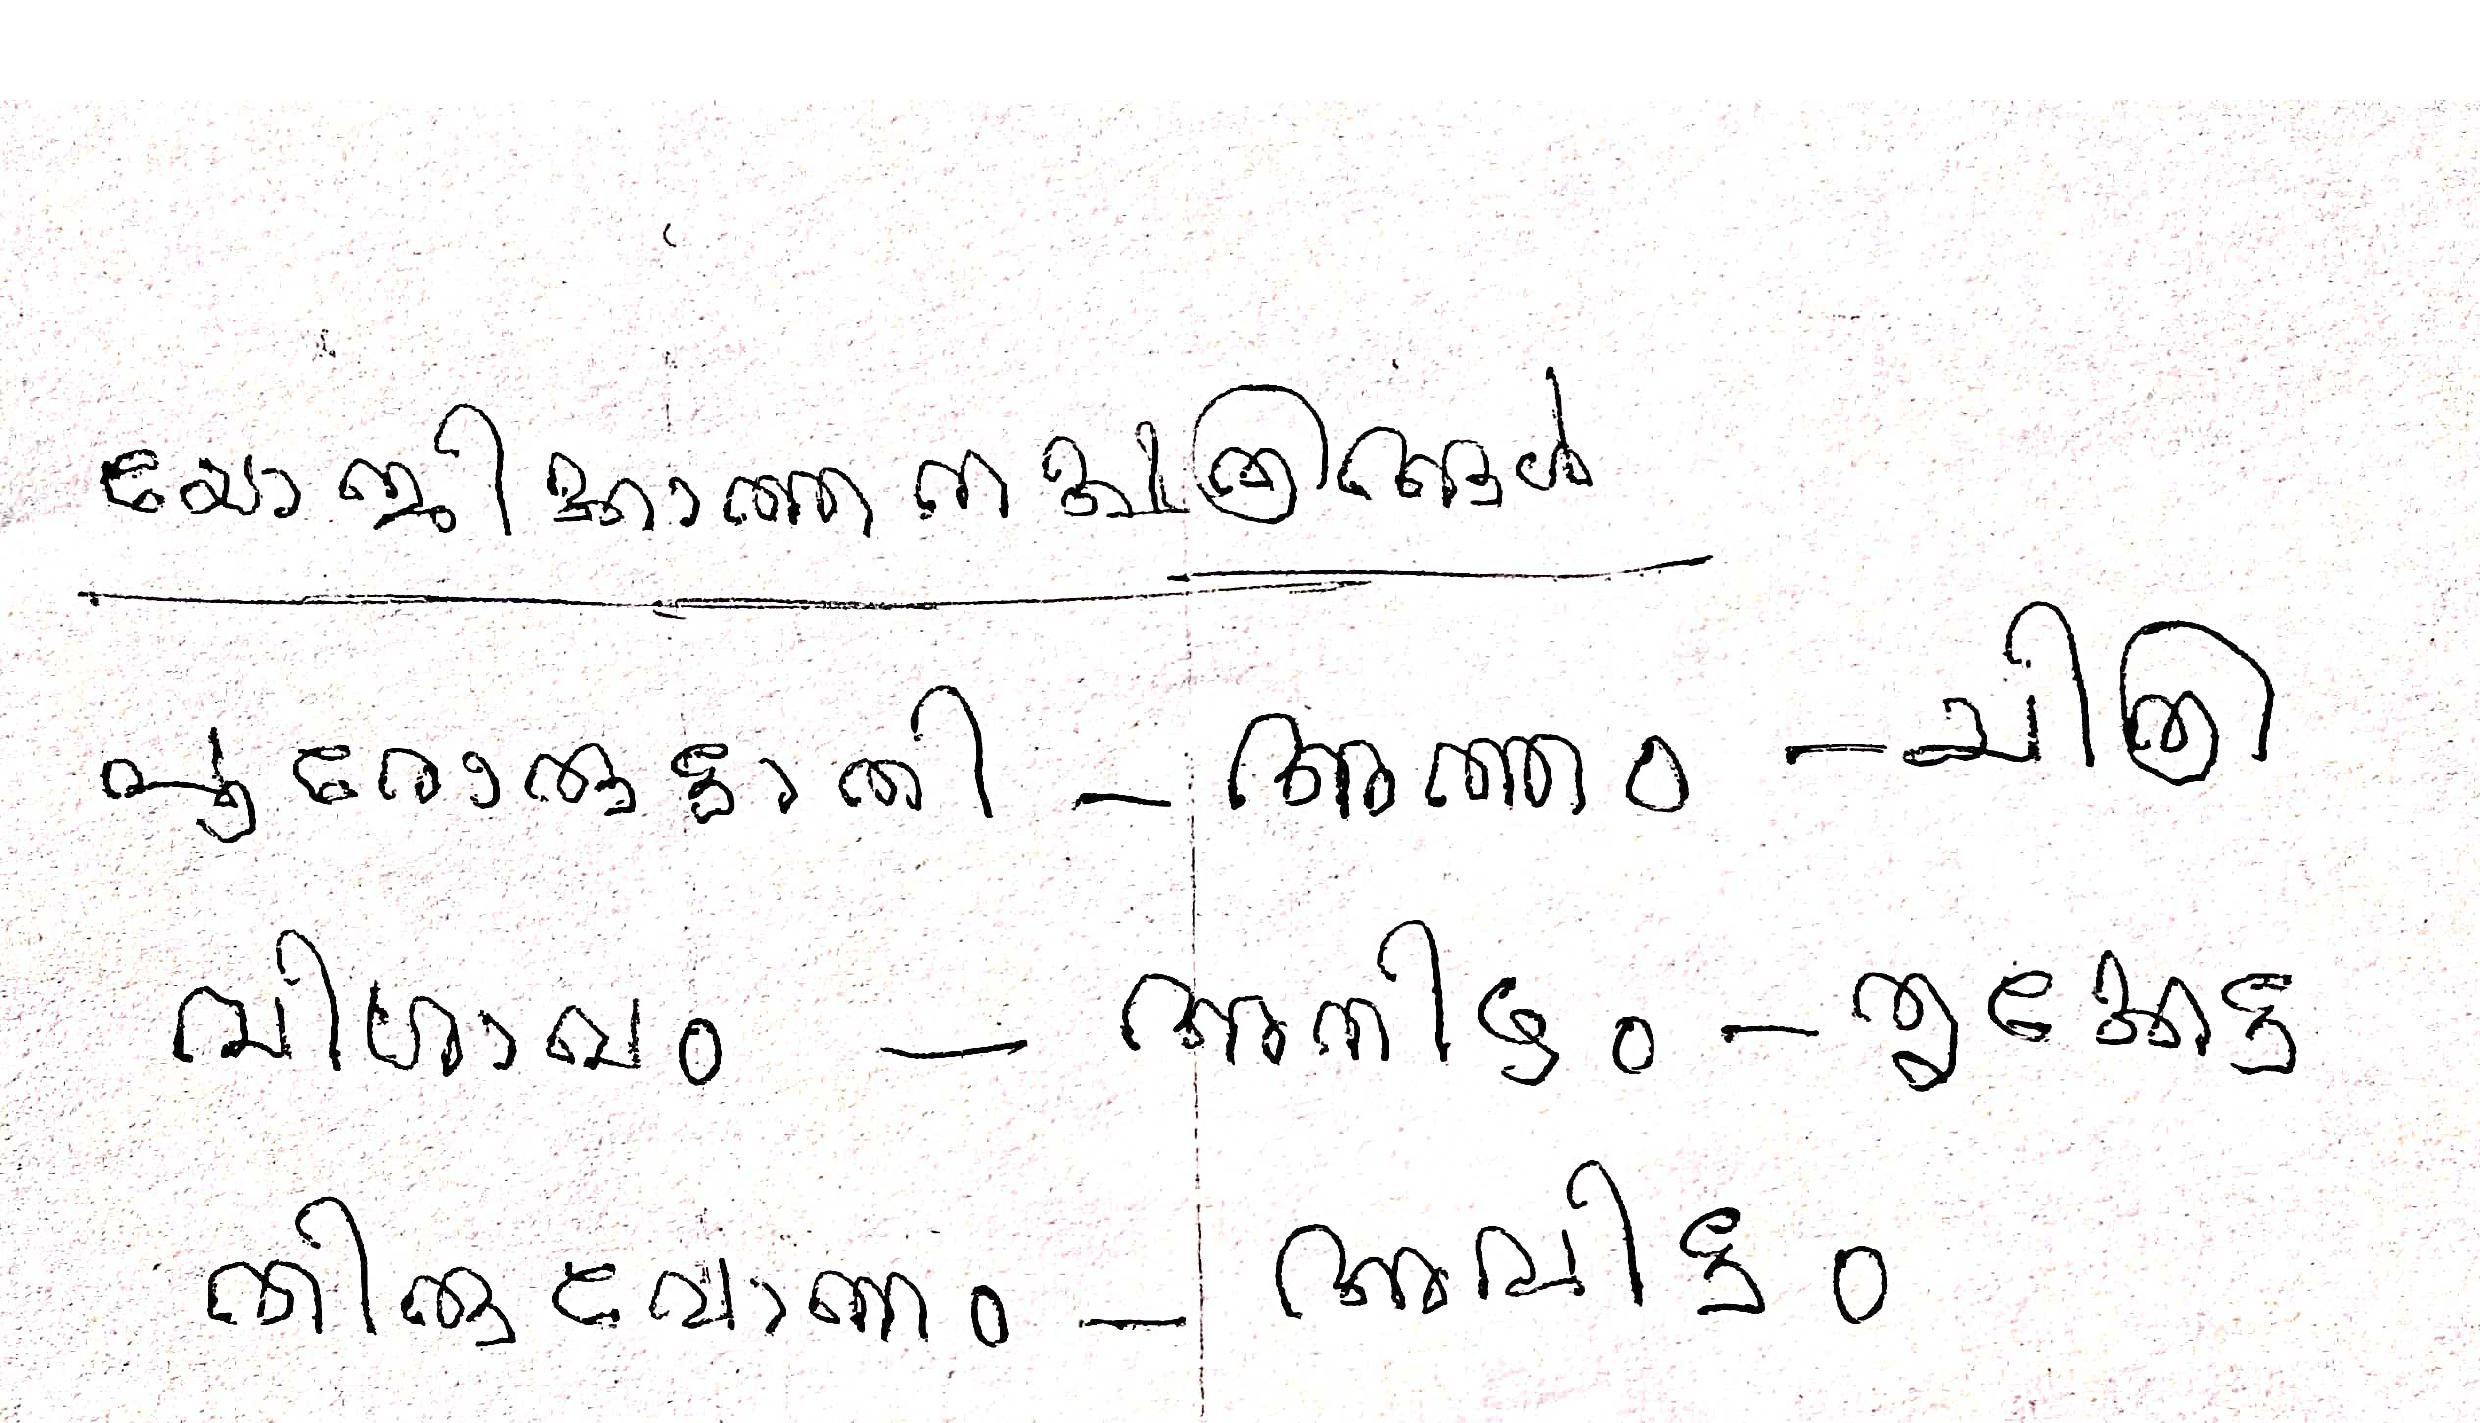 യോജിക്കാത്ത നക്ഷത്രങ്ങൾ
പൂരോരുട്ടാതി - അത്തം - ചിത്ര
വിശാഖം - അനിഴം - തൃക്കേട്ട
തിരുവോണം - അവിട്ടം